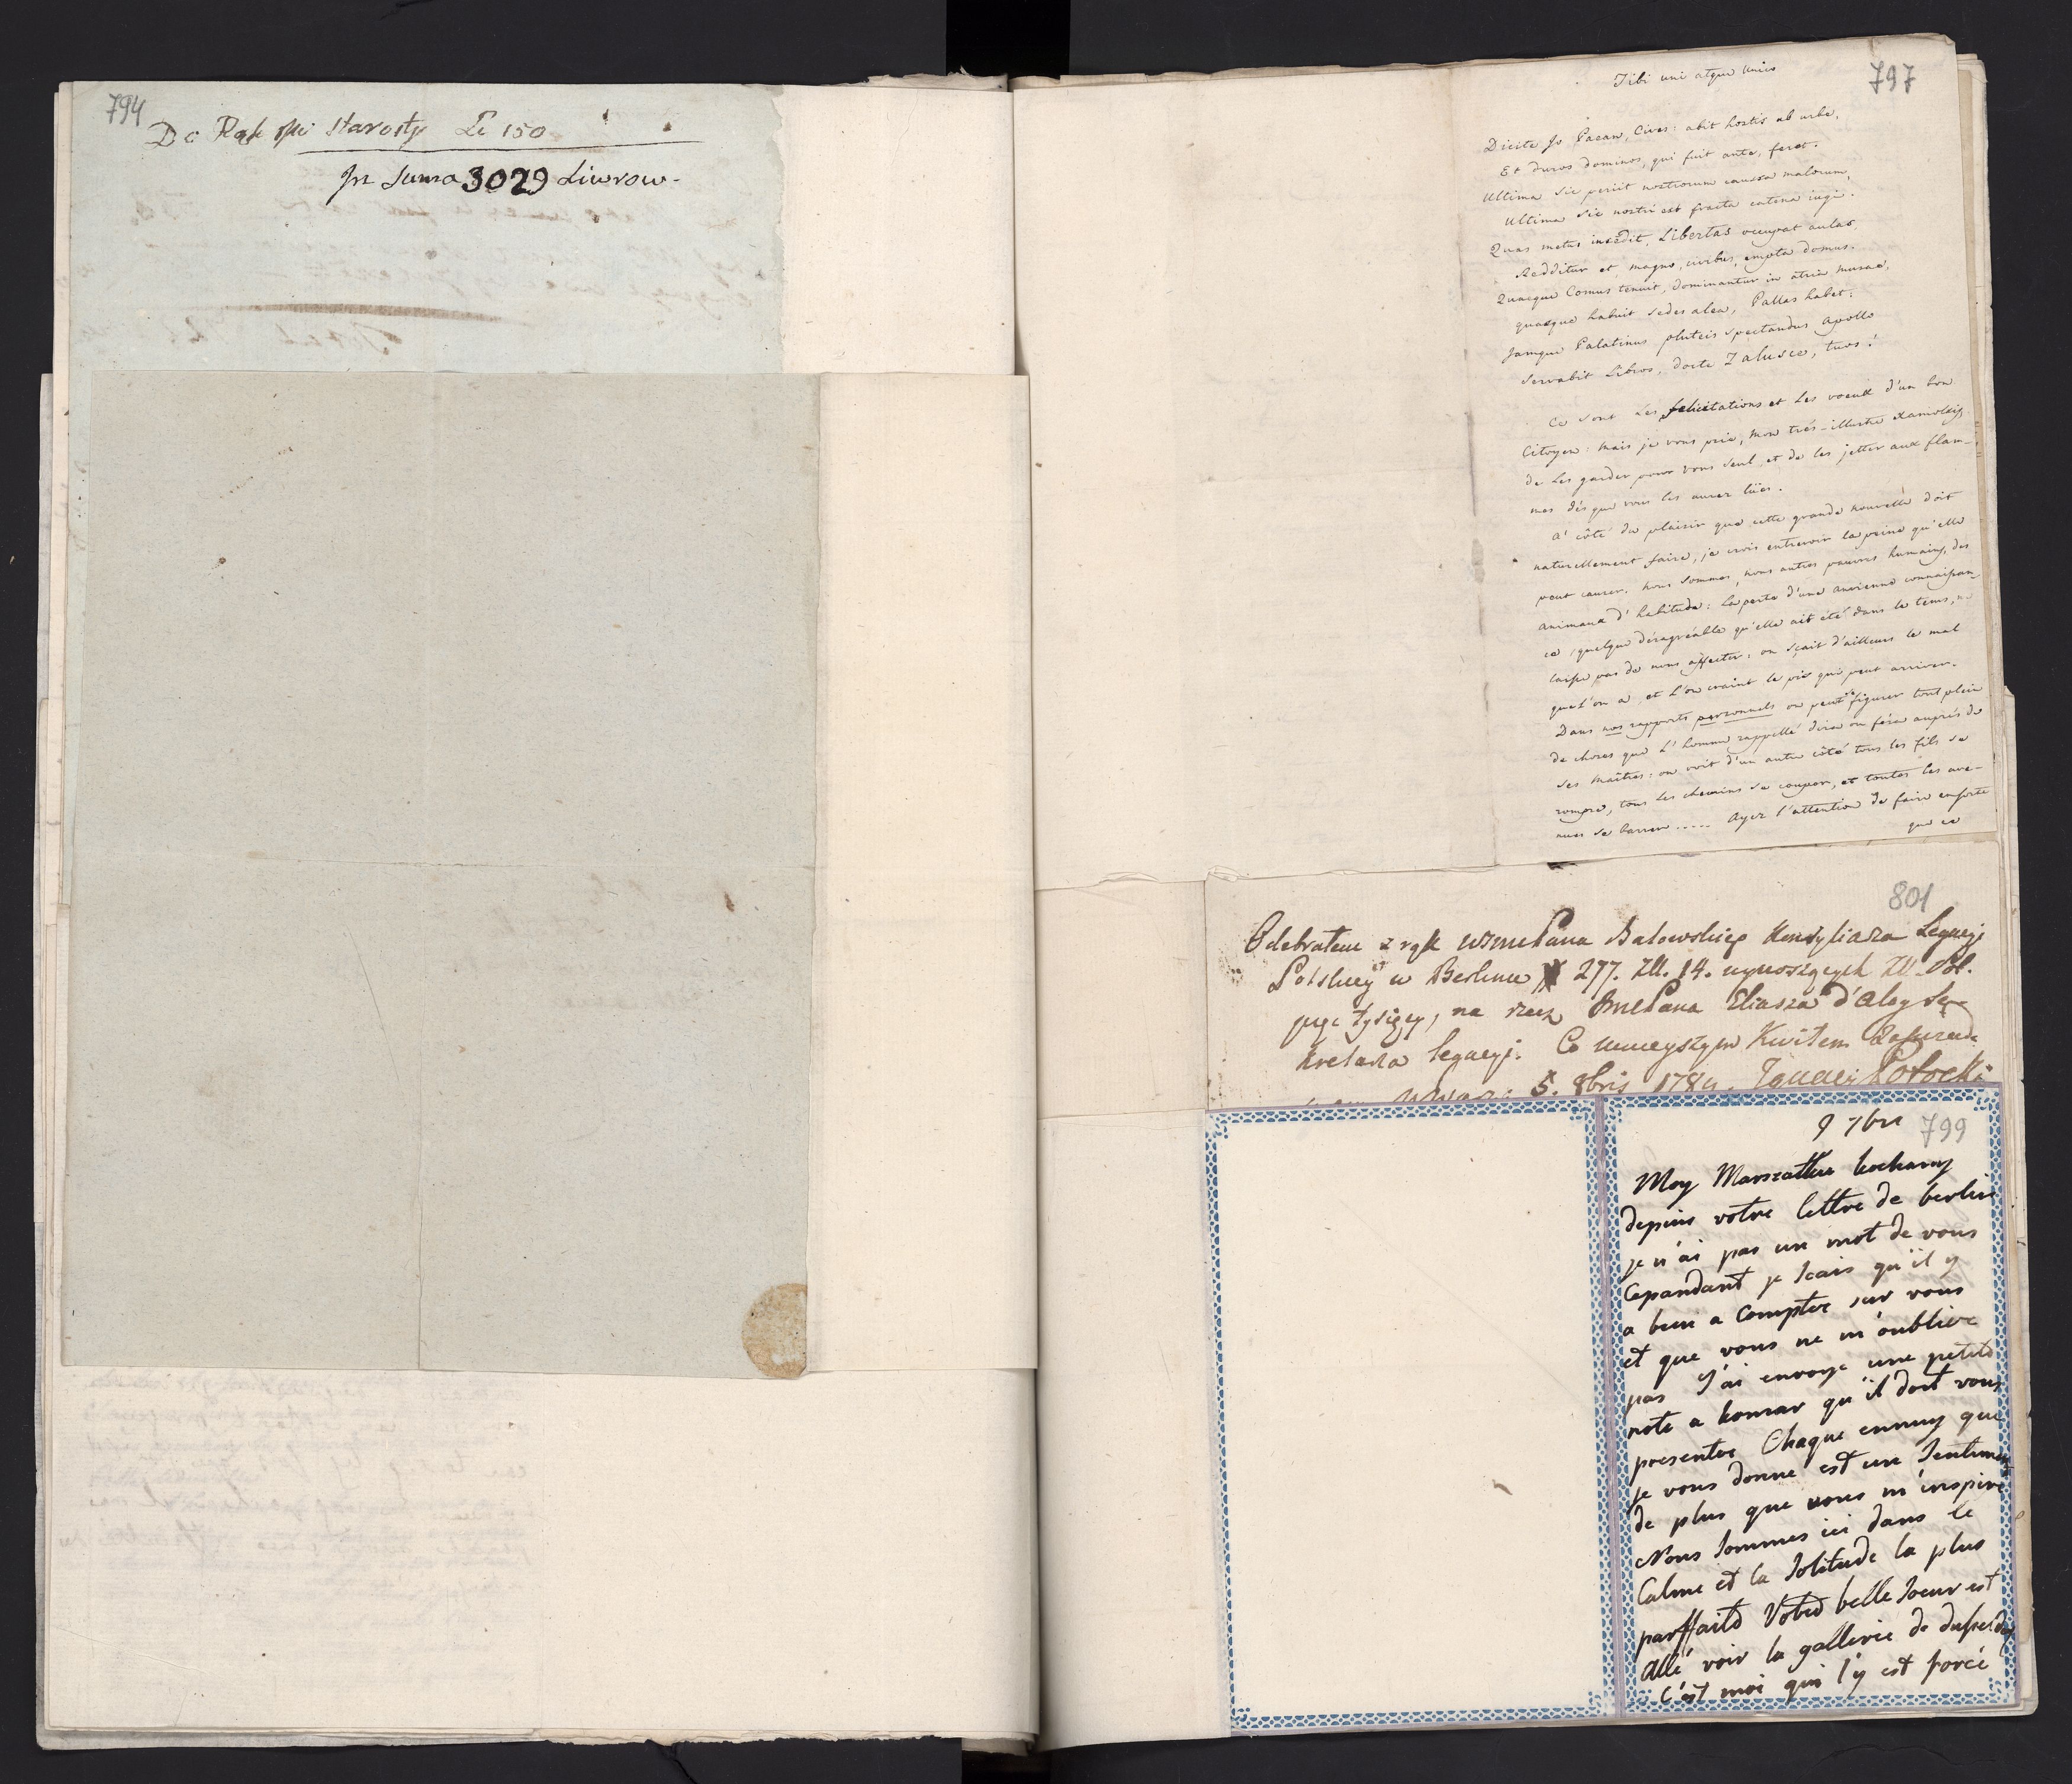 794
Do Rąk JPci Starosty Le 150
In Suma 3029 Liwrow-
797
Tibi uni atque unico
Dicite Jo Paean, Cives: abit hostis ab urbe,
Et duros dominos, qui fuit ante, feret.
Ultima sic periit nostrorum caussa malorum,
Ultima sic nostri est fracta catena iugi.
Quas metus insedit, Libertas occupat aulas,
Redditur et magno, civibus, empta domus.
Quaeque Comus tenuit, dominantur in atria musae,
quasque habuit sedes alea, Pallas habet:
Jamque Palatinus pluteis spectandus Apollo
Servabit Libros, docte Zalusce, tuos!
Ce sont les félicitations et les voeux d'un bon
Citoyen: mais je vous prie, mon très-illustre
de les garder pour vous seul, et de les jetter aux flam-
mes dès que vous les aurez lües.
A' côté du plaisir que cette grande nouvelle doit
naturellement faire, je crois entrevoir la peine qu'elle
peut causer. nous sommes, nous autres pauvres humains, des
animaux d'habitude: la perte d'une ancienne connaissan-
ce, quelque désagréable qu'elle ait été dans le tems, ne
laisse pas de nous affecter: on sçait d'ailleurs le mal
que l'on a, et l'on craint le pis qui peut arriver.
Dans nos rapports personnels on peut se figurer tout plein
de choses que l'homme rappellé dira ou féra auprès de
ses maîtres: on voit d'un autre côté tous les fils se
rompre, tous les chemins se couper, et toutes les ave-
nues se barrer..... Ayez l'attention de faire ensorte
que ce
801
Odebrałem z rąk WJmcPana Batowskiego Konsyliarza Legacyi
Polskiey w Berlinie # 277. Zll. 14. wynoszących Zll. Pol.
pięć tysięcy, na rzecz JmcPana Eliasza d'Aloy Se-
kretarza legacyi. Co ninieyszym Kwitem
5. 8bris 178 . Ignacy Potocki
9 7bre 799
Moy Marszałku kochany
depuis votre lettre de berlin
je n'ai pas un mot de vous
Cependant je scais qu'il y
a bien a compter sur vous
et que vous ne m'oublie
pas J'ai envoye une petite
note a komar qu'il doit vous
presenter Chaque ennuy que
je vous donne est un Sentiment
de plus que vous m'inspire
Nous Sommes ici dans le
Calme et la Solitude la plus
parffaite Votre belle Soeur est
allé voir la gallerie de
C'est moi qui l'y est forcé